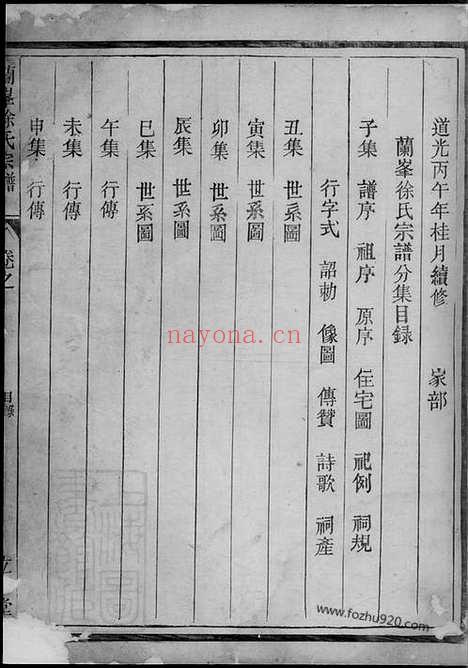 道光丙午年桂月續修 家部
蘭峯徐氏宗譜分集目錄
子集 譜序 祖序 原序 住宅圖 祀例 祠規
行字式 詔勅 像圖 傳贊 詩歌 祠產
丑集 世系圖
寅集 世系圖
卯集 世系圖
辰集 世系圖
巳集 世系圖
午集 行傳
未集 行傳
申集 行傳
徐氏宗譜 卷之 目錄
堂
nayona.cn
www.fozhu920.com